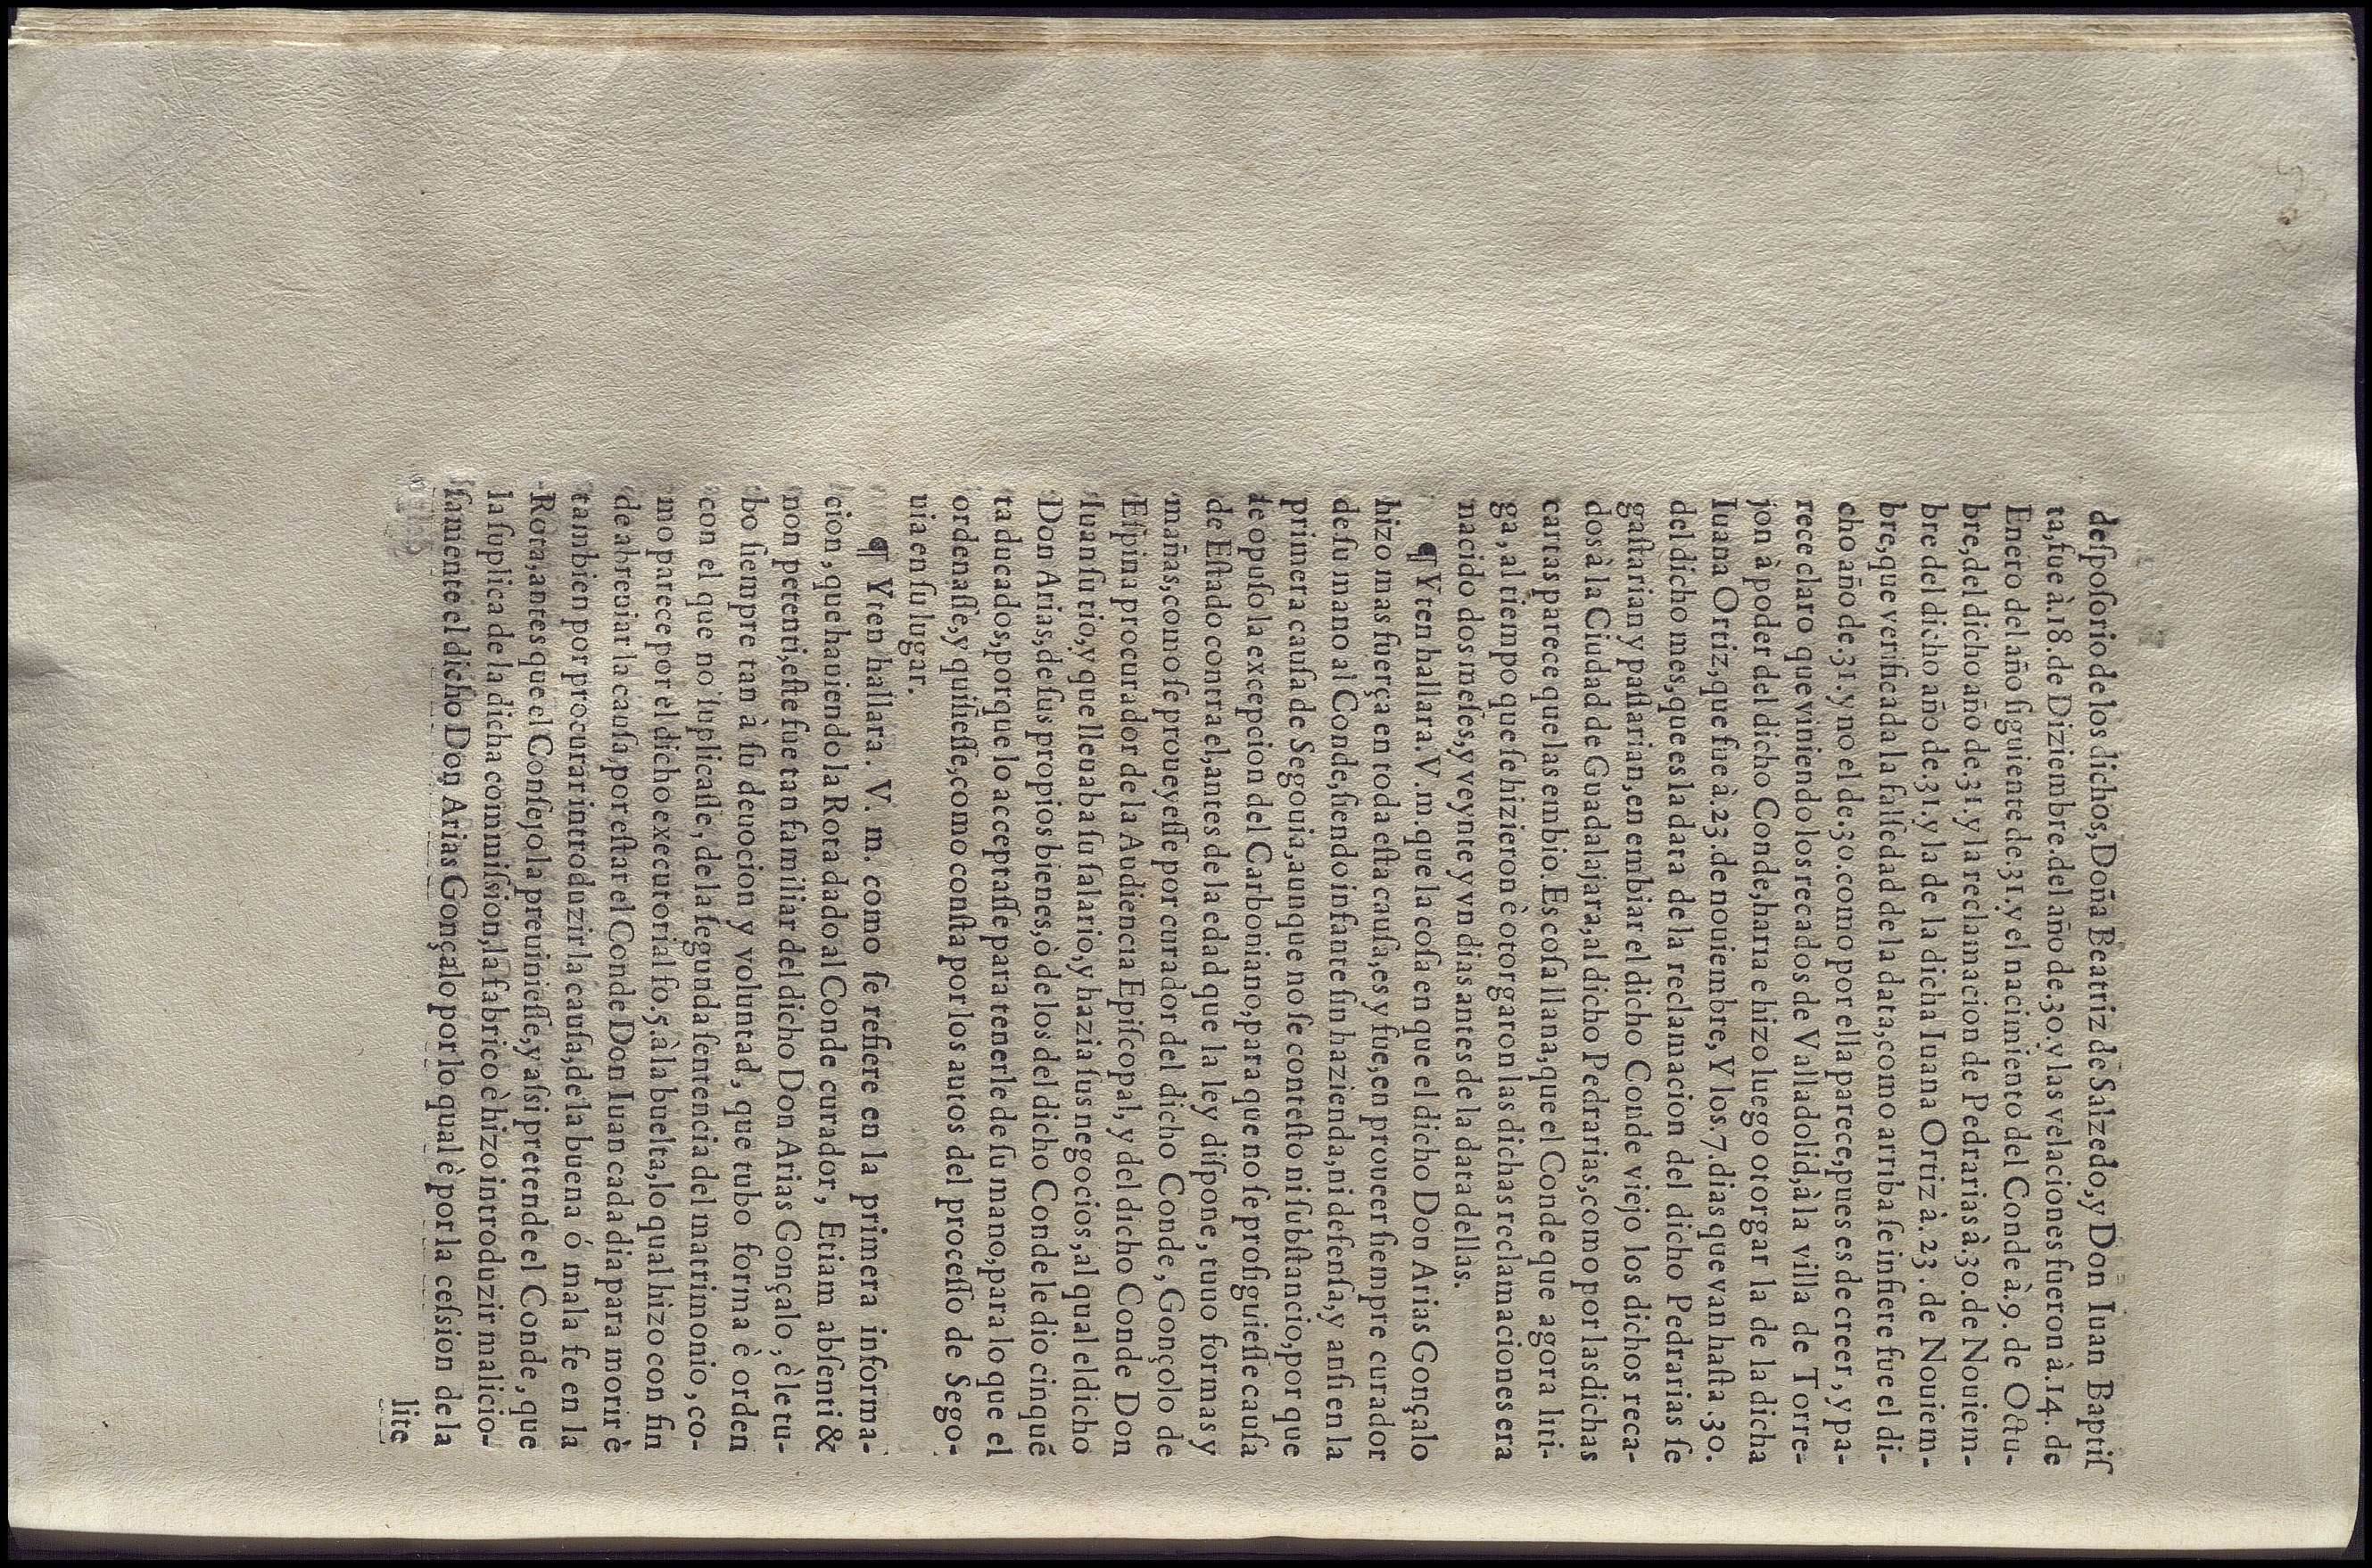 deſpoſorio de los dichos, Doña Beatriz de Salzedo, y Don Iuan Baptiſ
ta, fue à. 18. de Diziembre. del año de. 30. y las velaciones fueron à. 14. de
Enero del año ſiguiente de. 31. y el nacimiento del Conde à. 9. de Octu-
bre, del dicho año de. 31. y la reclamacion de Pedrarias à. 30. de Nouiem-
bre del dicho año de. 31. y la de la dicha Iuana Ortiz à. 23. de Nouiem-
bre, que verificada la falſedad de la data, como arriba ſe infiere fue el di-
cho año de. 31. y no el de. 30. como por ella parece, pues es de creer, y pa-
rece claro que viniendo los recados de Valladolid, à la villa de Torre-
jon à poder del dicho Conde, haria e hizo luego otorgar la de la dicha
Iuana Ortiz, que fue à. 23. de nouiembre, Y los. 7. dias que van haſta. 30.
del dicho mes, que es la dara de la reclamacion del dicho Pedrarias ſe
gaſtarian y paſſarian, en embiar el dicho Conde viejo los dichos reca-
dos à la Ciudad de Guadalajara, al dicho Pedrarias, como por las dichas
cartas parece que las embio. Es coſa llana, que el Conde que agora liti-
ga, al tiempo que ſe hizieron è otorgaron las dichas reclamaciones era
nacido dos meſes, y veynte y vn dias antes de la data dellas.
¶ Yten hallara. V. m. que la coſa en que el dicho Don Arias Gonçalo
hizo mas fuerça en toda eſta cauſa, es y fue, en proueer ſiempre curador
de ſu mano al Conde, ſiendo infante ſin hazienda, ni defenſa, y anſi en la
primera cauſa de Segouia, aunque no ſe conteſto ni ſubſtancio, por que
ſe opuſo la excepcion del Carboniano, para que no ſe proſiguieſſe cauſa
de Eſtado contra el, antes de la edad que la ley diſpone, tuuo formas y
mañas, como ſe proueyeſſe por curador del dicho Conde, Gonçolo de
Eſpina procurador de la Audiencia Epiſcopal, y del dicho Conde Don
Iuan ſu tio, y que lleuaba ſu ſalario, y hazia ſus negocios, al qual el dicho
Don Arias, de ſus propios bienes, ò de los del dicho Conde le dio cinquẽ
ta ducados, porque lo acceptaſſe para tenerle de ſu mano, para lo que el
ordenaſſe, y quiſieſſe, como conſta por los autos del proceſſo de Sego-
uia en ſu lugar.
¶ Yten hallara. V. m. como ſe refiere en la primera informa-
cion, que hauiendo la Rota dado al Conde curador, Etiam abſenti &
non petenti, eſte fue tan familiar del dicho Don Arias Gonçalo, è le tu-
bo ſiempre tan à ſu deuocion y voluntad, que tubo forma è orden
con el que no ſuplicaſſe, de la ſegunda ſentencia del matrimonio, co-
mo parece por el dicho executorial fo. 5. à la buelta, lo qual hizo con fin
de abreuiar la cauſa, por eſtar el Conde Don Iuan cada dia para morir è
tambien por procurar introduzir la cauſa, de la buena ó mala fe en la
Rota, antes que el Conſejo la preuinieſſe, y aſsi pretende el Conde, que
la ſuplica de la dicha commiſsion, la fabrico è hizo introduzir malicio-
ſamente el dicho Don Arias Gonçalo por lo qual è por la ceſsion de la
lite